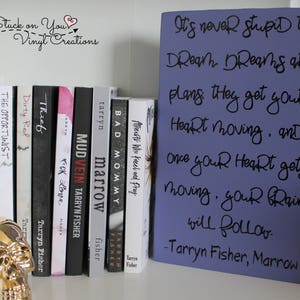 Stuck on You
Vinyl Creations
It's never stupid t
Dream. Dreams a
plans. they get you
Heart moving, an
once your Heart get
moving, your Brain
will follow.
-Tarryn Fisher, Marrow
THE OPPORTUNIST
Dirty Red
Tarryn Fisher
Thief
Tarryn Fisher
F*ck Love
Fisher
MUD VEIN TARRYN FISHER
tarryn
marrow
fisher
BAD MOMMY
Atheists Who Kneel and Pray